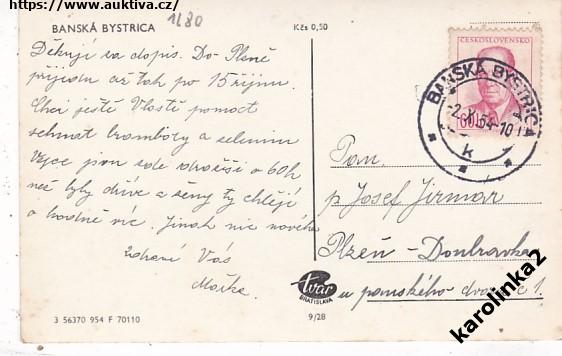 https://www.auktiva.cz/
1180
BANSKÁ BYSTRICA
Kčs 0,50
ČESKOSLOVENSKO
BANSKÁ BYSTRICA
-2.X.54-10
k
60h
Děkuji za dopis. Do Plzně
přijedu až tak po 15 říjnu.
Chci ještě Vlastě pomoct
sehnat brambory a zeleninu
Vejce jsou zde dražší o 60 h
než byly dříve a ženy ty chtějí
o hodně víc. Jinak nic nového
Zdraví Vás
Pan
p Josef Jirmár
Plzeň - Doubravka
u panského dvora č 1.
tvar
BRATISLAVA
3 56370 954 F 70110
9/28
karolinka2